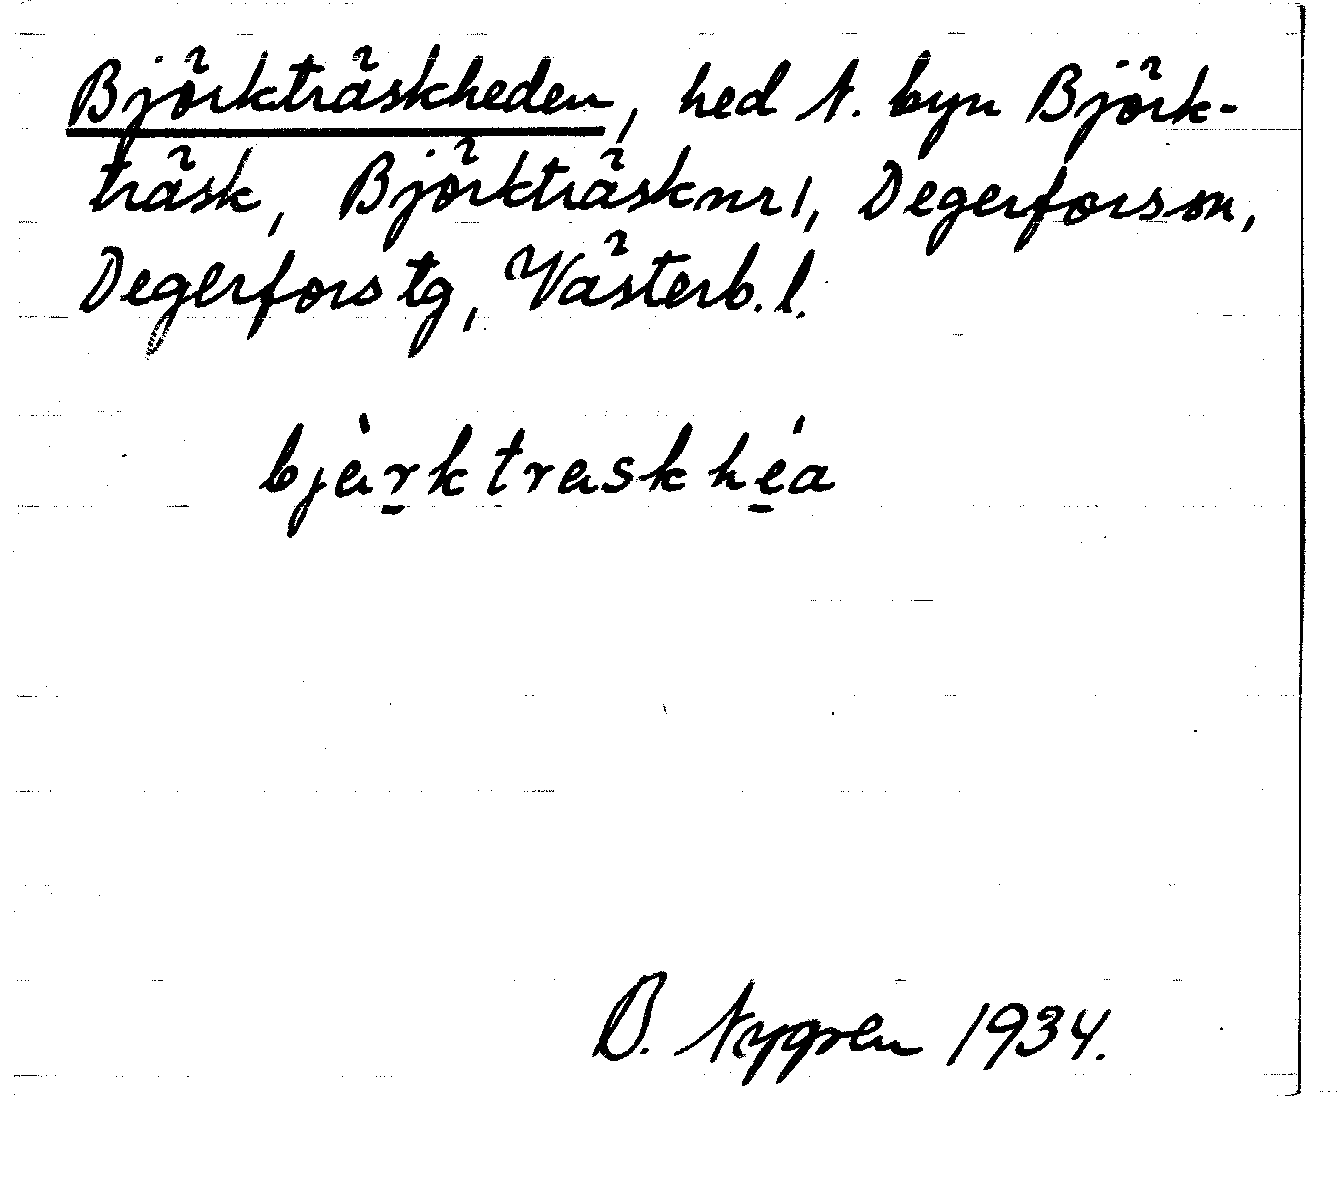 Björkträskheden, hed N. byn Björk-
träsk, Björkträsk nr 1, Degerfors sn,
Degerfors tg, Västerb. l.
bjärktraskhea
B. Nygren 1934.